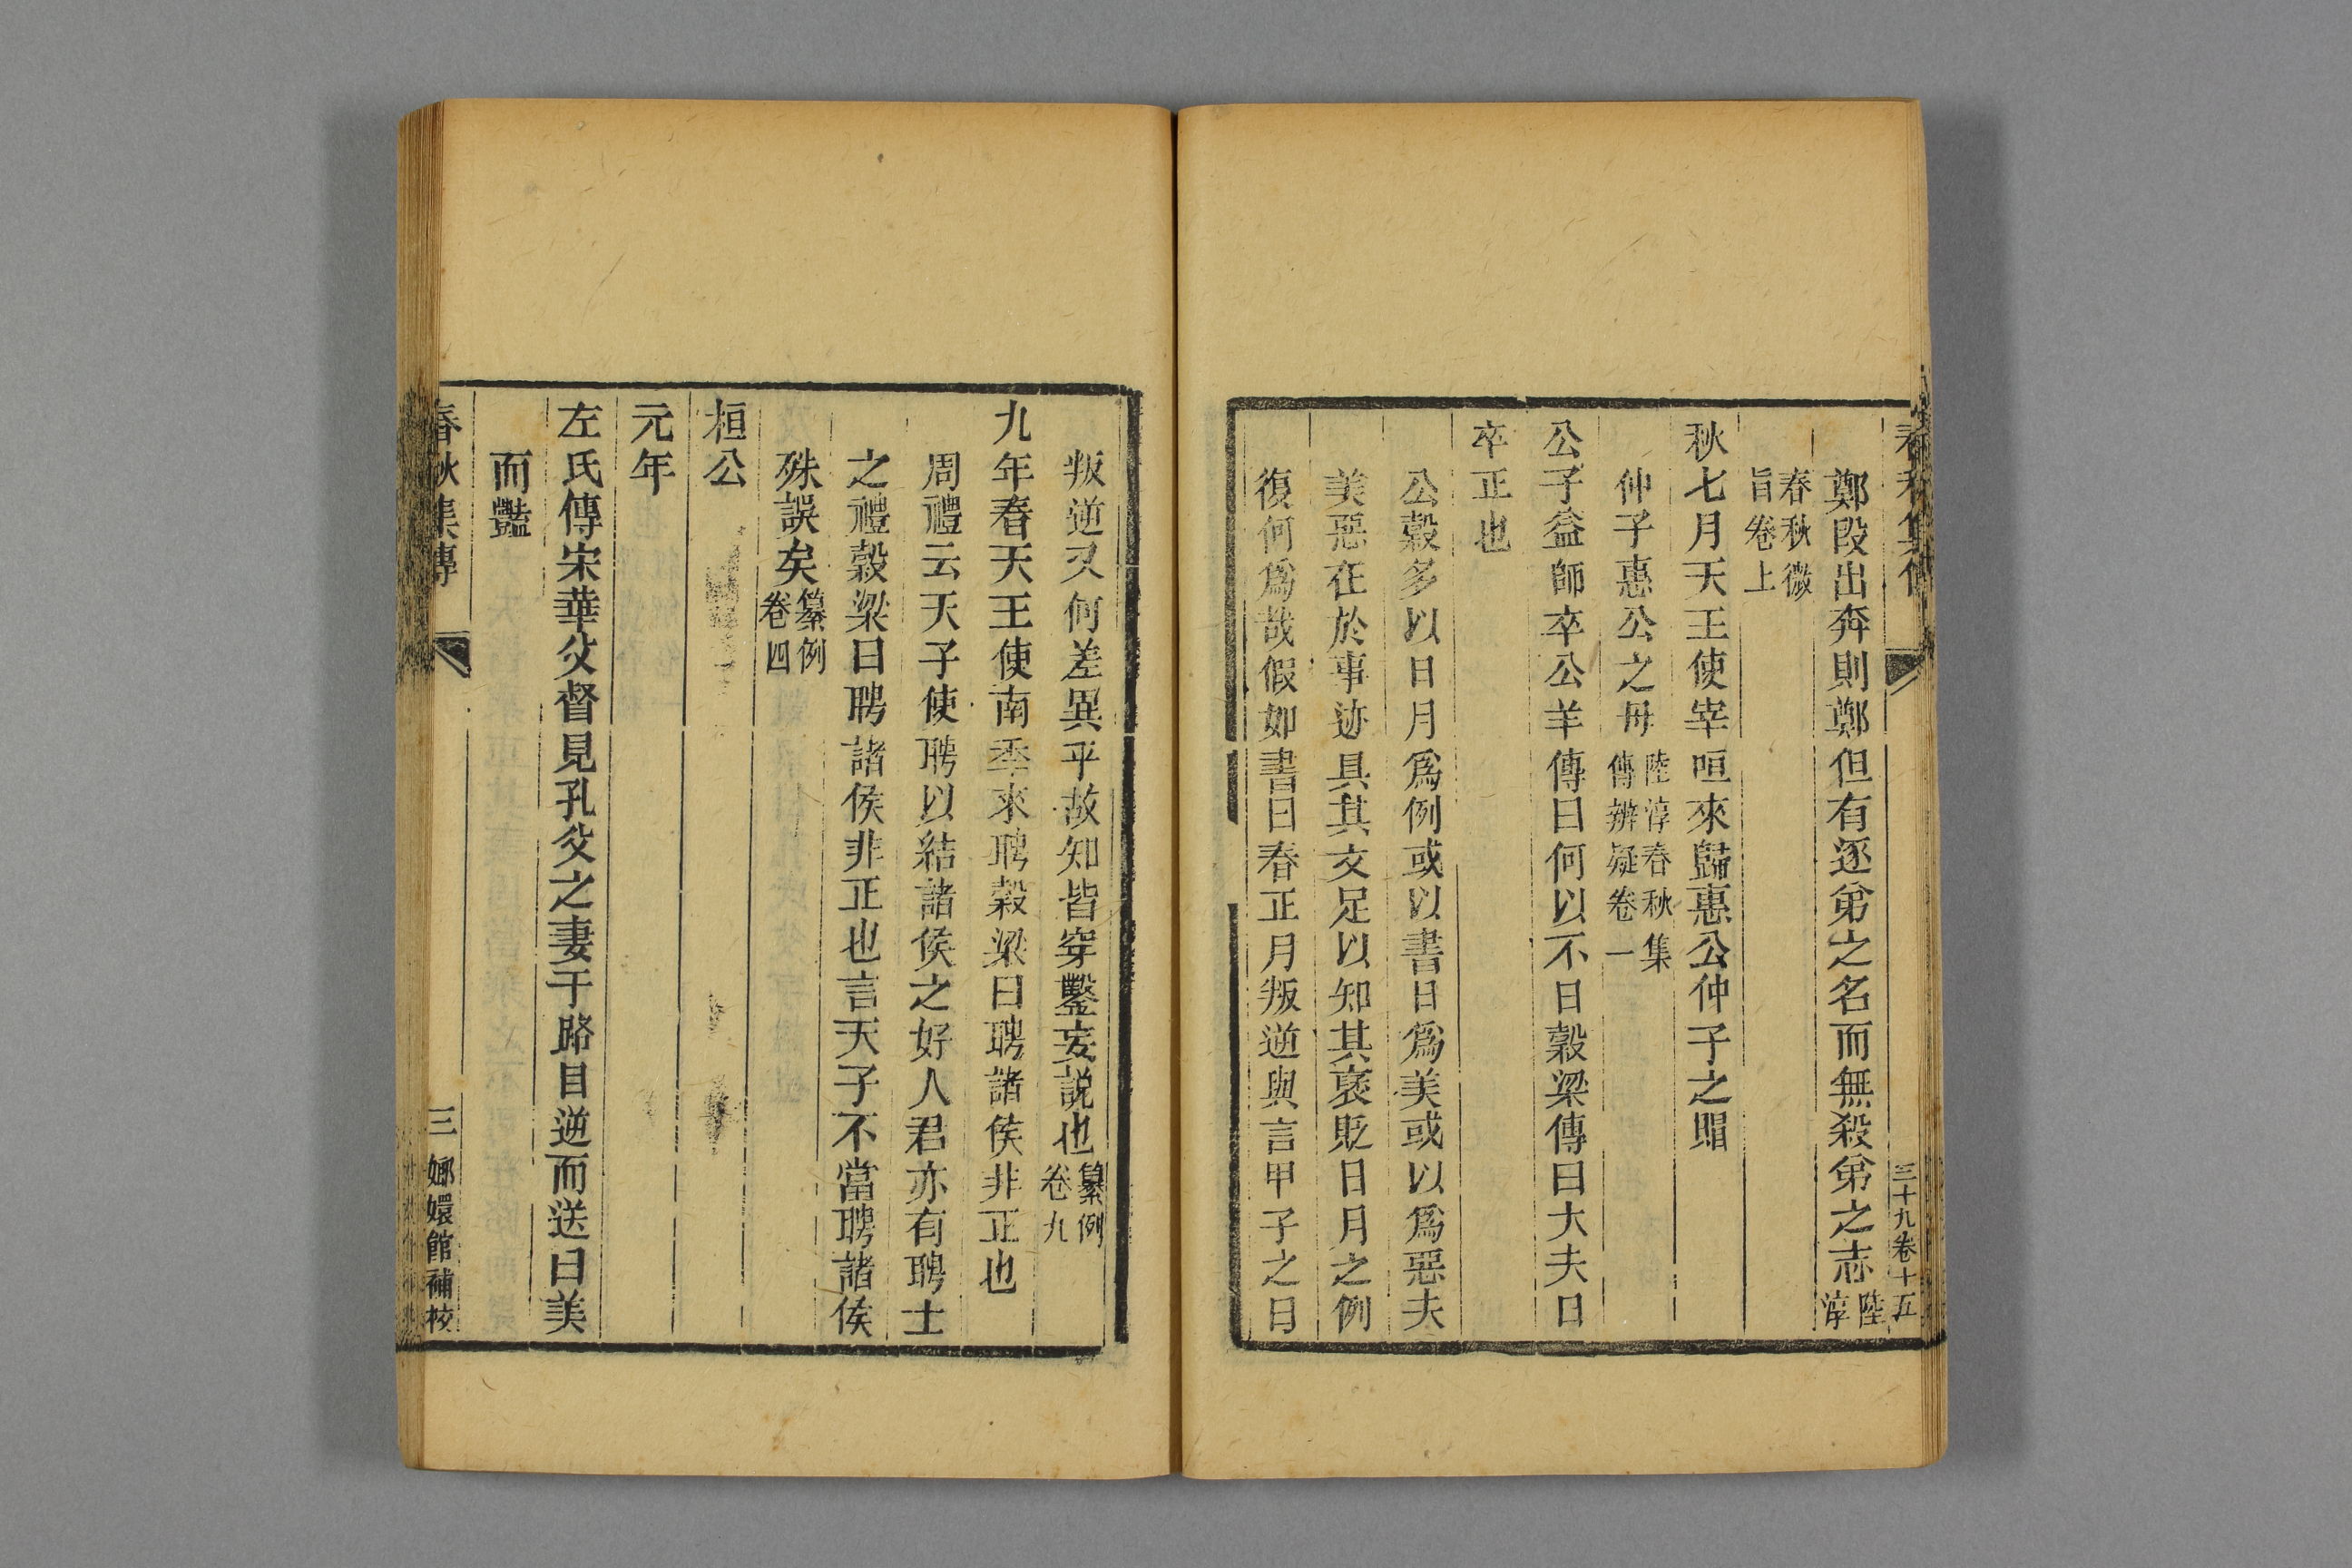 春秋集傳
三十九卷十五
鄭段出奔則鄭但有逐弟之名而無殺弟之志陸淳
春秋微旨卷上
秋七月天王使宰咺來歸惠公仲子之賵
仲子惠公之母陸淳春秋集傳辨疑卷一
公子益師卒公羊傳曰何以不日穀梁傳曰大夫日
卒正也
公穀多以日月爲例或以書日爲美或以爲惡夫
美惡在於事迹具其文足以知其襃貶日月之例
復何爲哉假如書曰春正月叛逆與言甲子之日
叛逆又何差異乎故知皆穿鑿妄説也纂例卷九
九年春天王使南季來聘穀梁曰聘諸侯非正也
周禮云天子使聘以結諸侯之好人君亦有聘士
之禮穀梁曰聘諸侯非正也言天子不當聘諸侯
殊誤矣纂例卷四
桓公
元年
左氏傳宋華父督見孔父之妻于路目逆而送曰美
而豔
春秋集傳
三
嫏嬛館補校